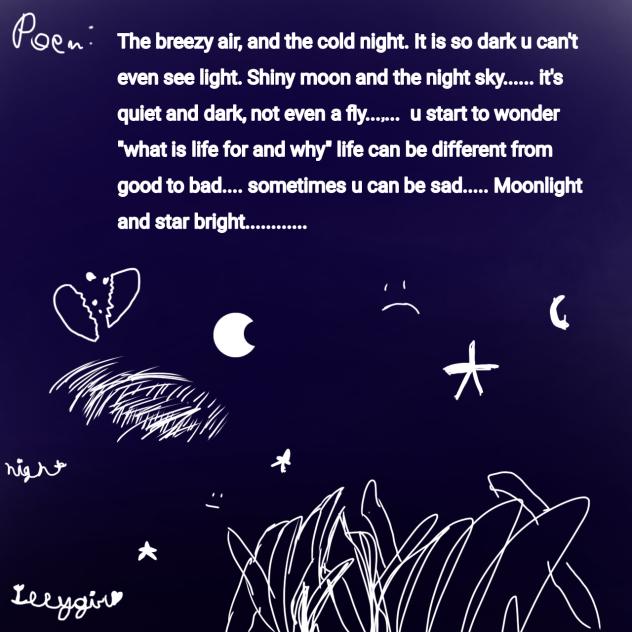 Poem:
The breezy air, and the cold night. It is so dark u can't
even see light. Shiny moon and the night sky...... it's
quiet and dark, not even a fly...,...  u start to wonder
"what is life for and why" life can be different from
good to bad.... sometimes u can be sad..... Moonlight
and star bright............
night